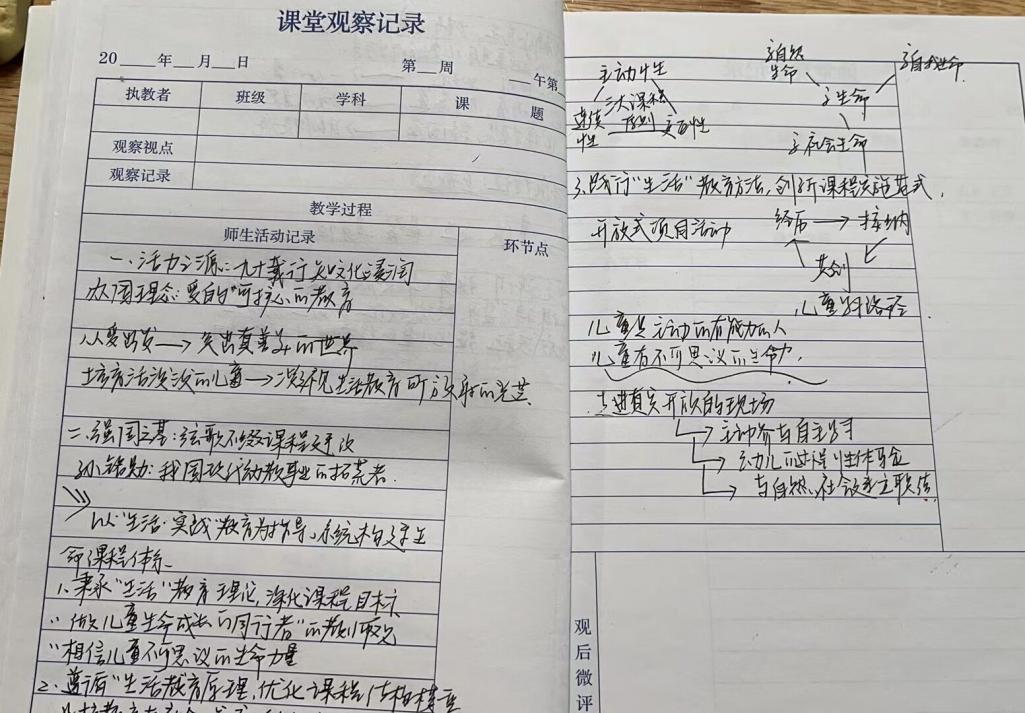 课堂观察记录
20 年 月 日 第 周 午第
执教者 班级 学科 课 题
观察视点
观察记录
教学过程
师生活动记录 环节点
一、活力之源:九十载行知文化浸润
办园理念:爱的"可持心的教育
从爱出发→ 突出真善美的世界
培育活泼泼的儿童→ 生活教育所放射的光芒
二、强园之基:弦歌不缀课程更改
孙铭勋:我国现代幼教事业的拓荒者.
以"生活·实践"教育为指导,系统构建生
命课程体系.
1、秉承"生活"教育理论,深化课程目标
"做儿童生命成长的同行者"的教师
"相信儿童不可思议的生命力量
2、遵循"生活教育原理,优化课程结构模
主动性
三大课程
连续性
原则
实践性
与自然生命
与自我生命
与生命
与社会生命
3、践行"生活"教育方法,创新课程实施范式.
开放式项目活动
经历 → 接纳
共创
儿童 路径
儿童是主动的有能力的人
儿童有不可思议的生命力.
走进真实开放的现场
主动参与自主学习
幼儿 获得 体验
与自然、社会建立联结
观后微评